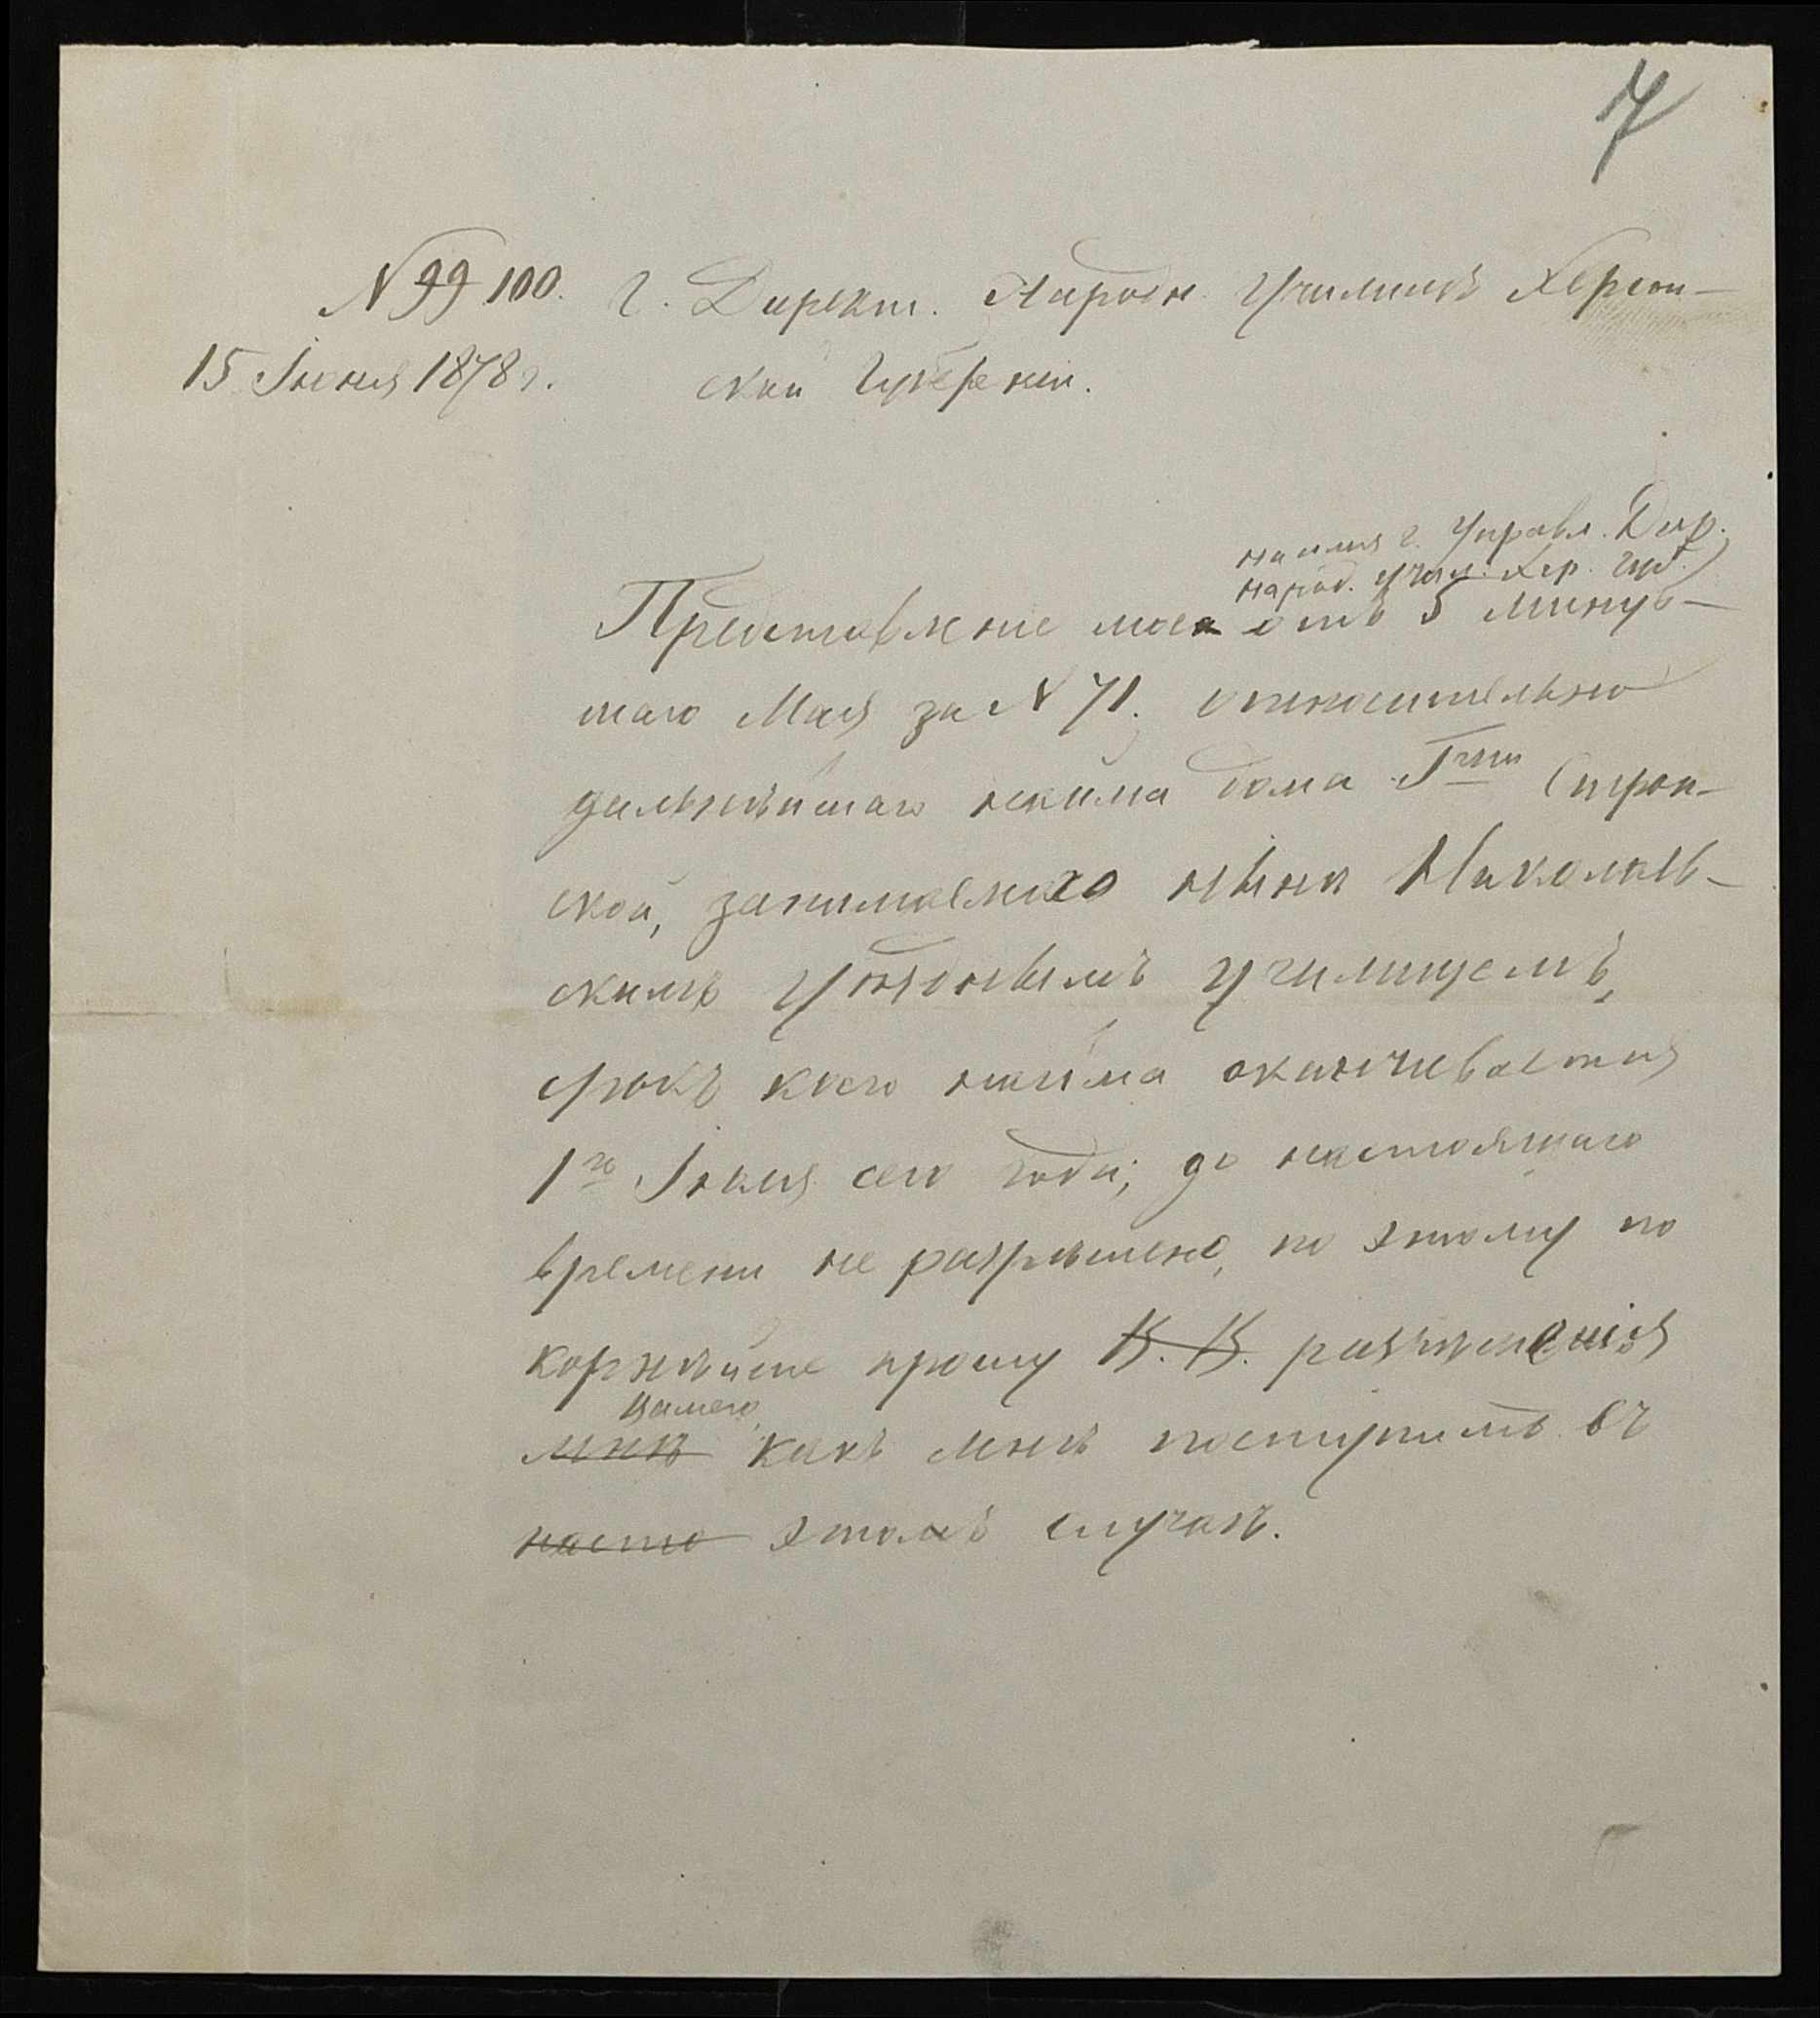 7
N 99 100. Г. Директ. Народн. Училищъ Херсон-
15 Іюня 1878 г. ской Губерніи.
на имя г. Управл. Дир.
народ. Учил. Хер. Губ.
Представленіе мое отъ 5 минув-
шаго Мая за N 71. относительно
дальнѣйшаго найма дома Г-жи
ской, занимаемаго нынѣ Николаев-
скимъ Уѣзднымъ училищемъ,
срокъ коего найма оканчивается
1го Іюля сего года; до настоящаго
времени не разрѣшено, по этому по
корнѣйше прошу В. В. разъясненія
Вашего
мнѣ какъ мнѣ поступить въ
насто этомъ случаѣ.